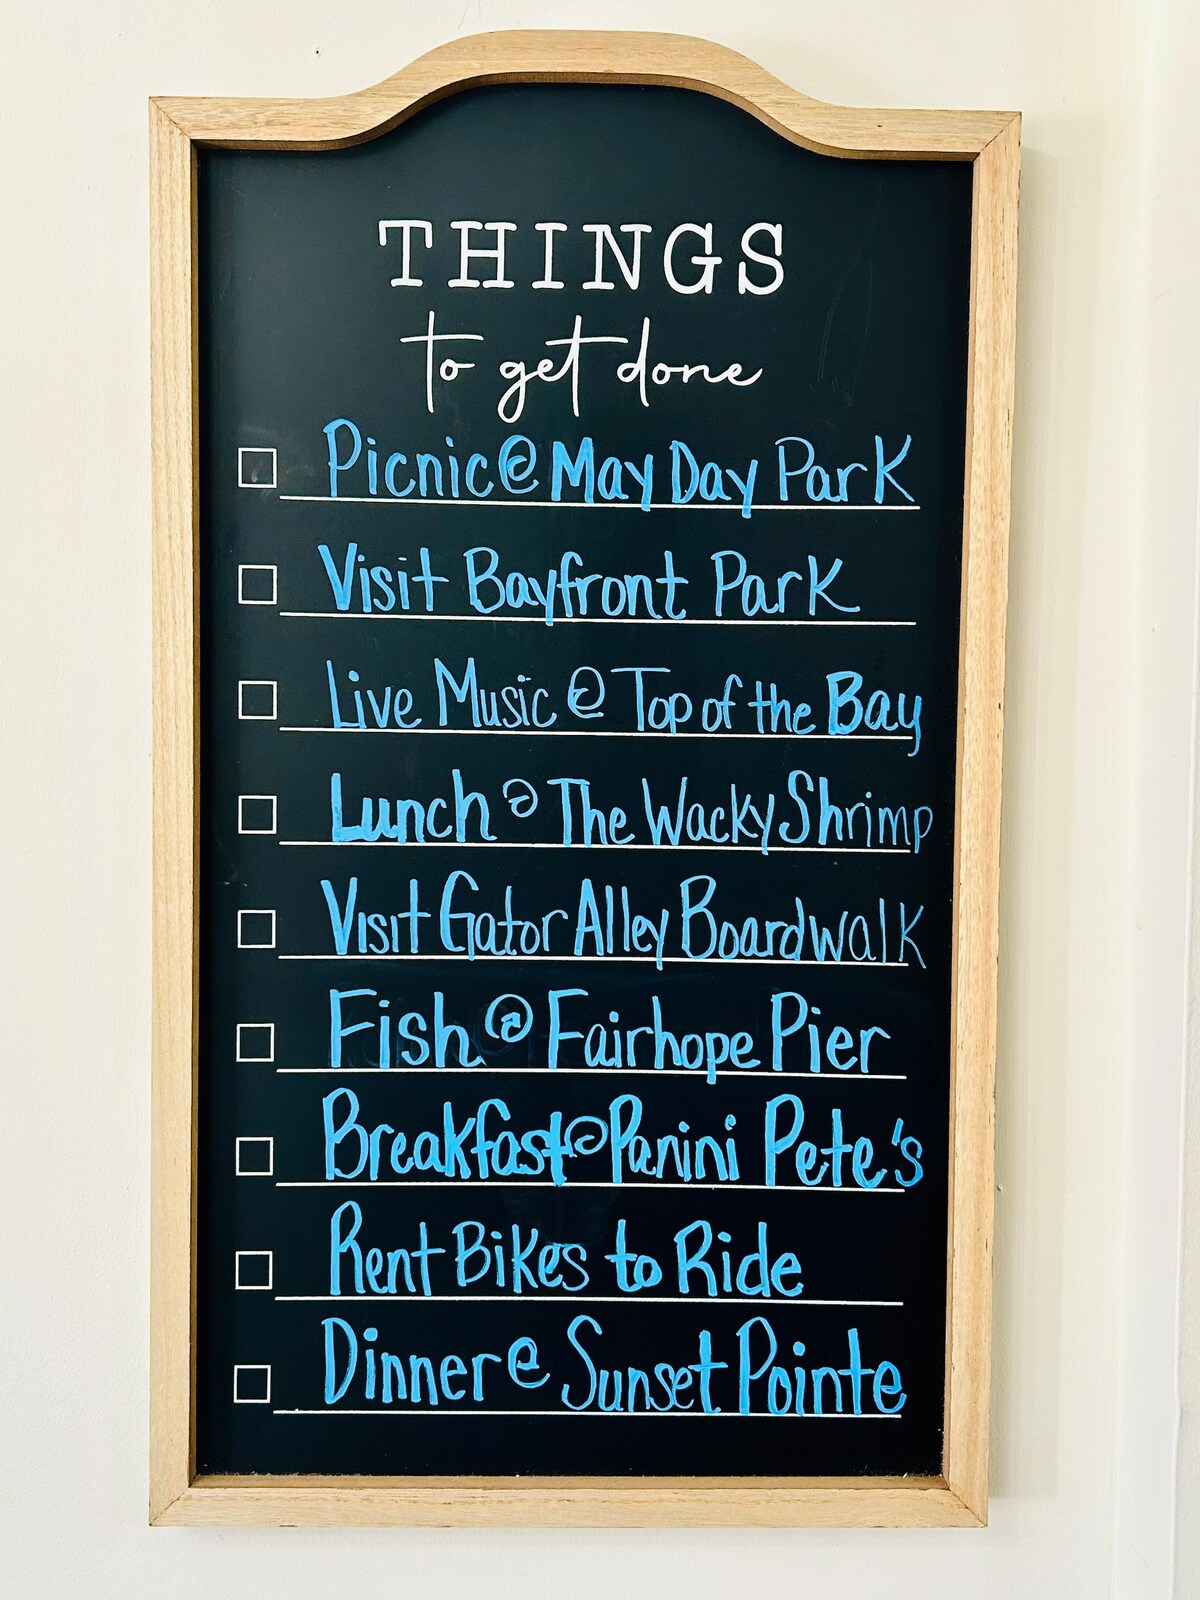 THINGS
to get done
Picnic @ May Day Park
Visit Bayfront Park
Live Music @ Top of the Bay
Lunch @ The Wacky Shrimp
Visit Gator Alley Boardwalk
Fish @ Fairhope Pier
Breakfast @ Panini Pete's
Rent Bikes to Ride
Dinner @ Sunset Pointe